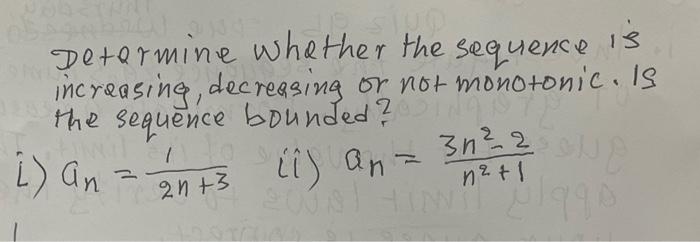 Determine whether the sequence is
increasing, decreasing or not monotonic. Is
the sequence bounded?
i) an = 1/(2n+3) ii) an = (3n²-2)/(n²+1)